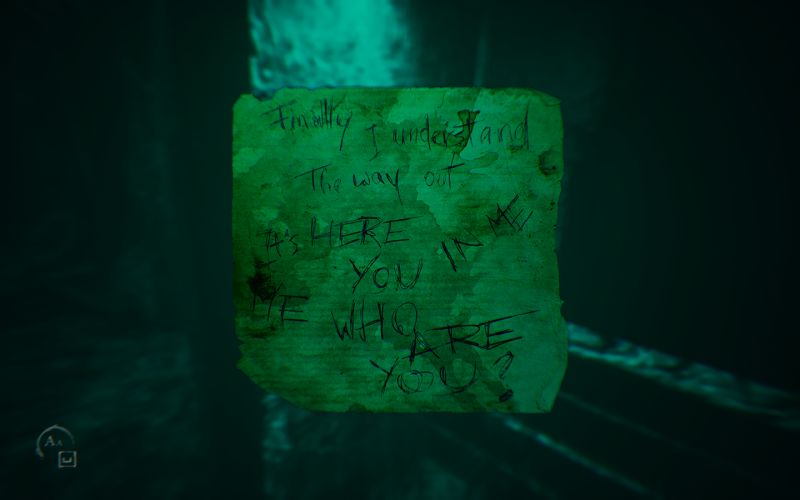 Finally I understand
The way out
It's HERE IN ME
YOU
ME WHO ARE
YOU?
AA